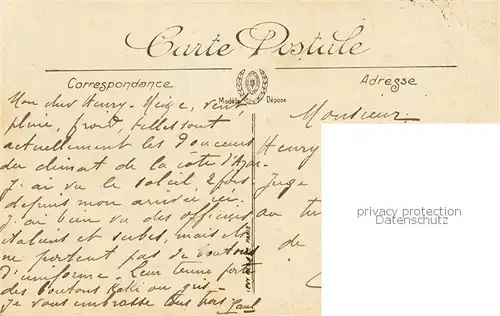 Carte Postale
Correspondance
Adresse
Modèle Déposé
Mon cher Henry - Neige, vent,
pluie, froid, telles sont
actuellement les douceurs
du climat de la côte d'Azur.
J'ai vu le soleil 2 fois
depuis mon arrivée ici.
J'ai bien vu des officiers
italiens et serbes, mais ils
ne portent pas de boutons
d'uniforme - Leur tenue porte
des boutons kaki ou gris -
Je vous embrasse tous trois Paul
Monsieur
Henry
Juge
au tu
de
privacy protection
Datenschutz